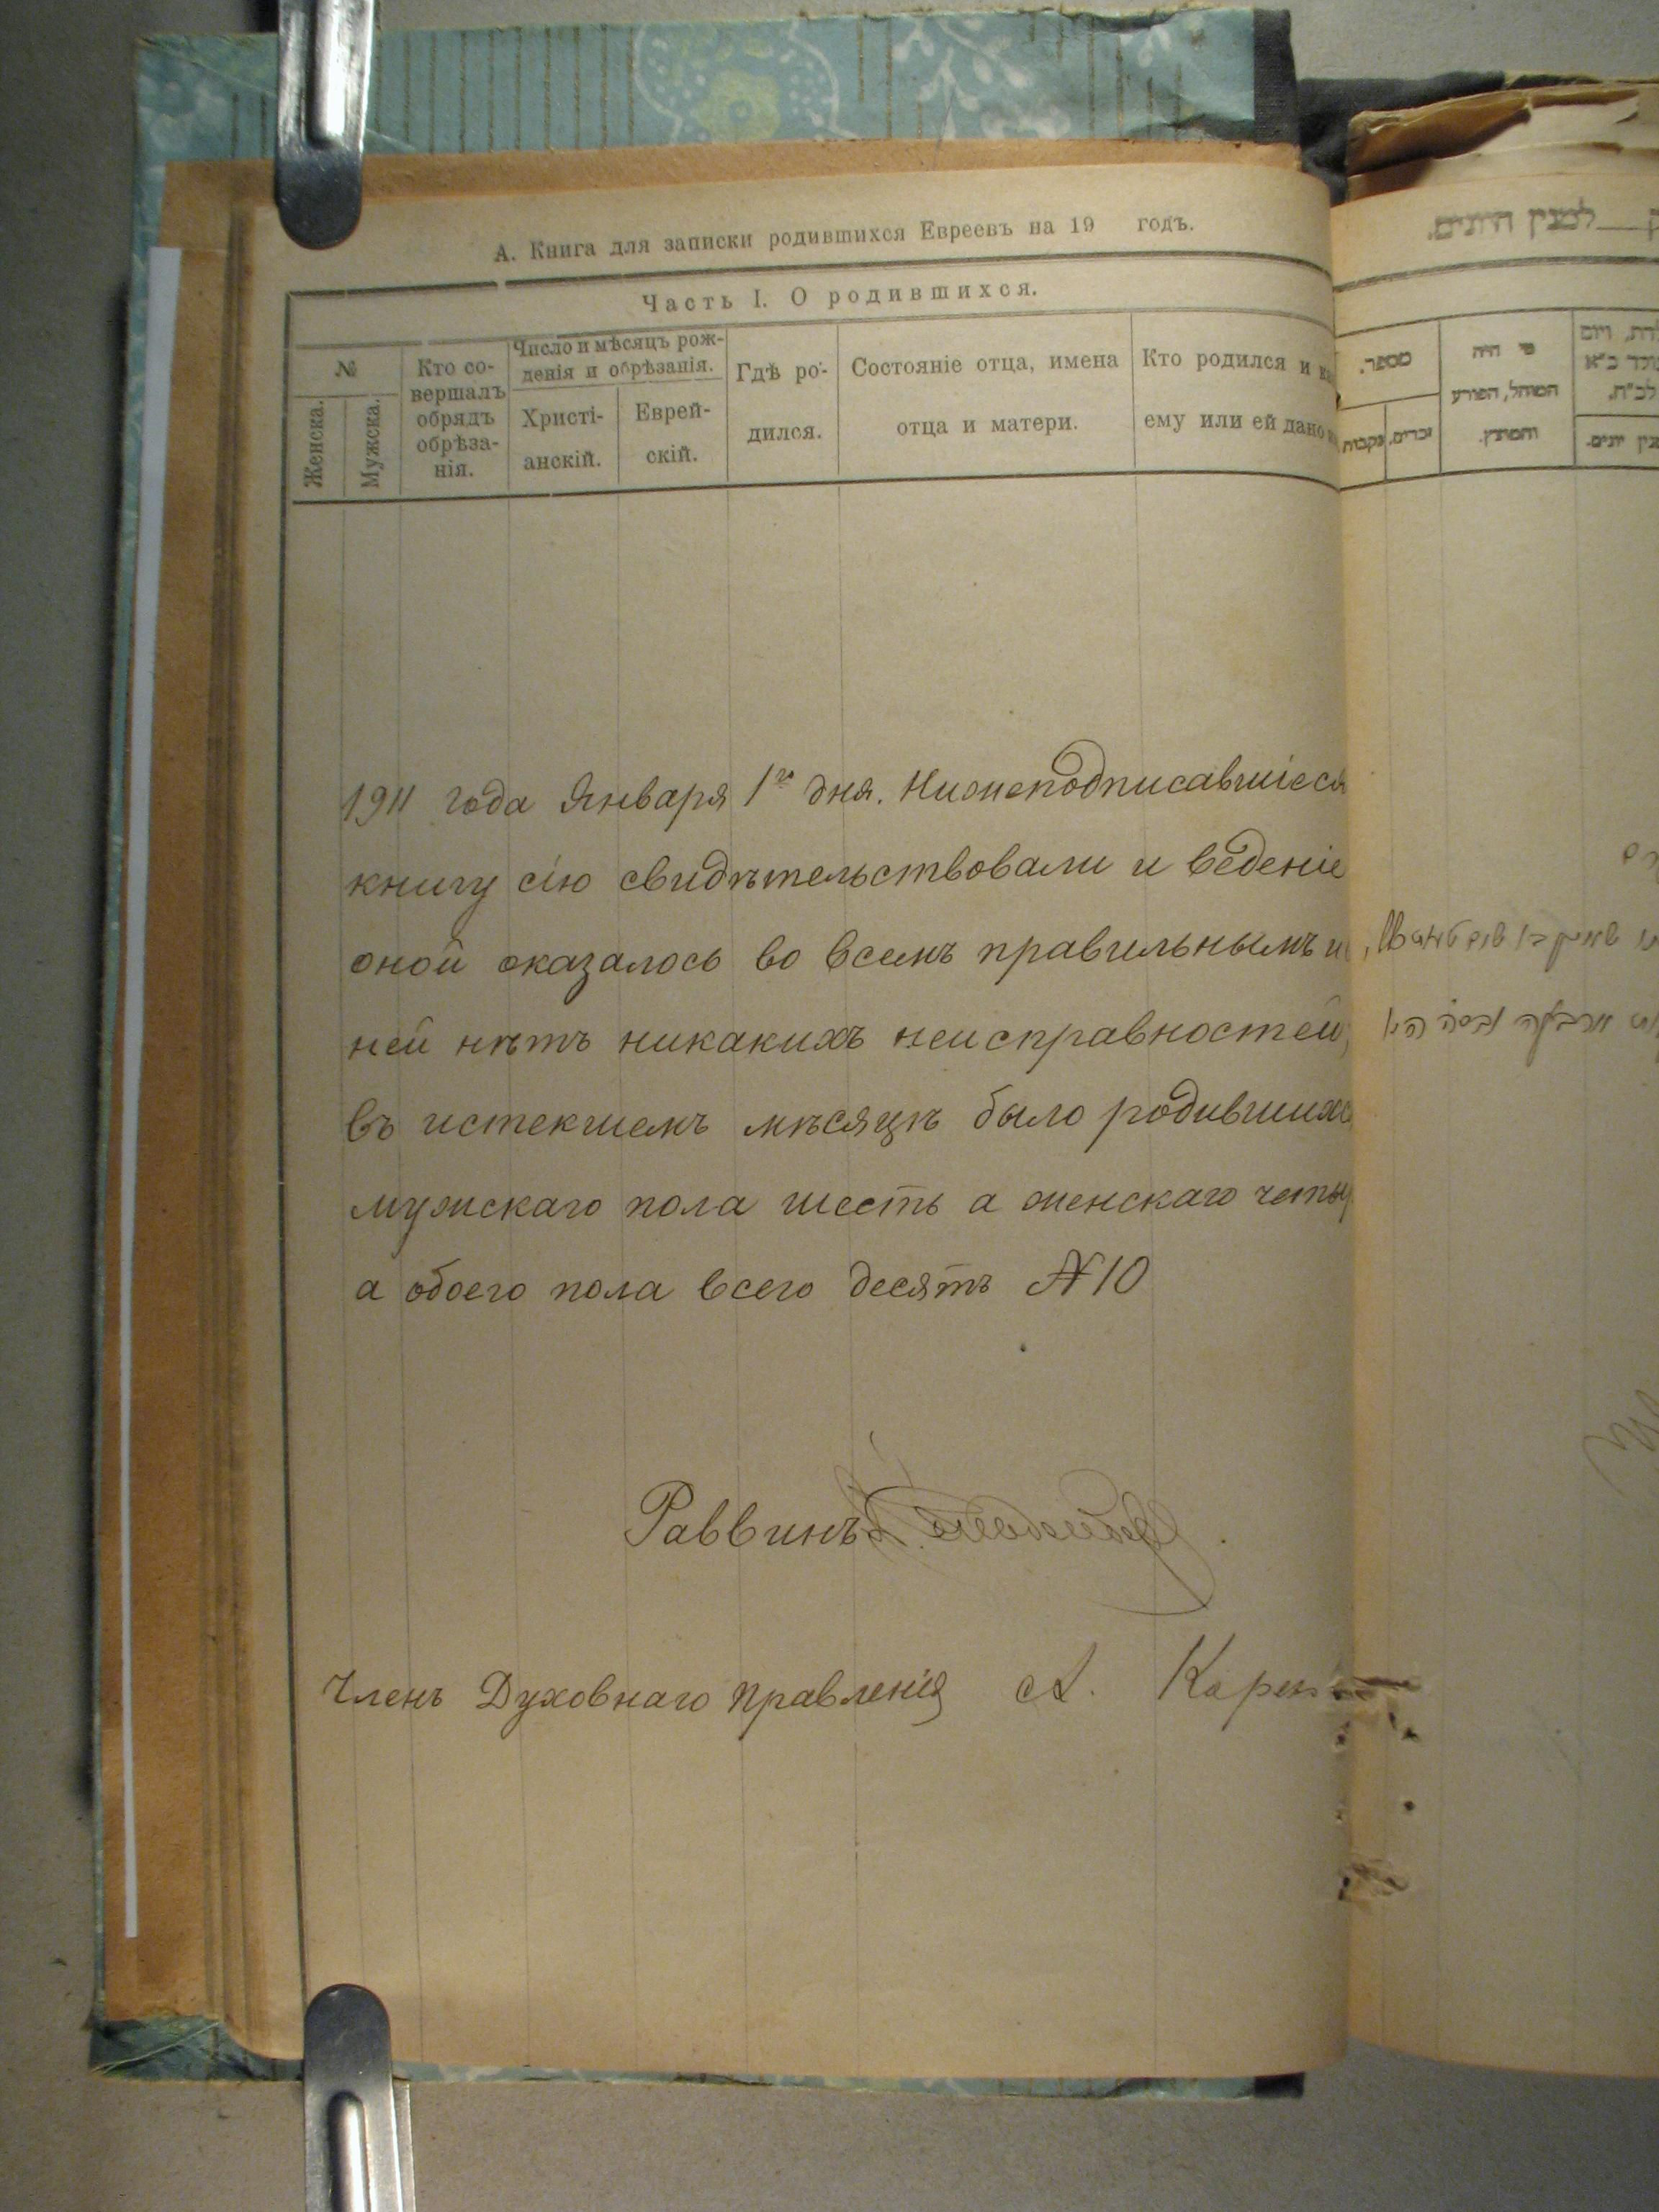 А. Книга для записки родившихся Евреевъ на 19 годъ.
Часть I. О родившихся.
№
Женска.
Мужска.
Кто со-
вершалъ
обрядъ
обрѣза-
нія.
Число и мѣсяцъ рож-
денія и обрѣзанія.
Христі-
анскій.
Еврей-
скій.
Гдѣ ро-
дился.
Состояніе отца, имена
отца и матери.
Кто родился и
ему или ей дано
1911 года Января 1го дня. Нижеподписавшіеся
книгу сію свидѣтельствовали и веденіе
оной оказалось во всемъ правильнымъ и
ней нѣтъ никакихъ неисправностей,
въ истекшемъ мѣсяцѣ было родивших
мужскаго пола шесть а женскаго четы
а обоего пола всего десять № 10
Раввинъ
Членъ Духовнаго правленія А.
למנין היונים.
מספר.
זכרים.
נקבות
מי היה
המוהל, הפורע
והמוצץ.